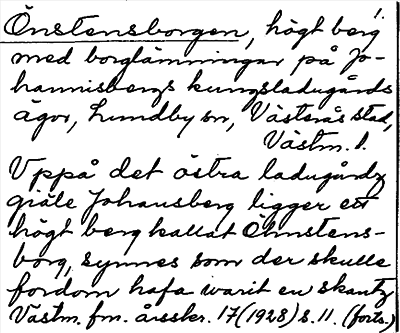 1.
Önstensborgen, högt berg
med borglämningar på Jo-
hannisbergs kungsladugårds
ägor, Lundby sn, Västerås stad,
Västm. l.
Uppå det östra ladugårdz
giäle Johansberg ligger ett
högt berg kallat Öhnstens-
borg, synnes som der skulle
fordom hafa warit en skantz
Västm. fm. årsskr. 17 (1928) s. 11. (forts.)